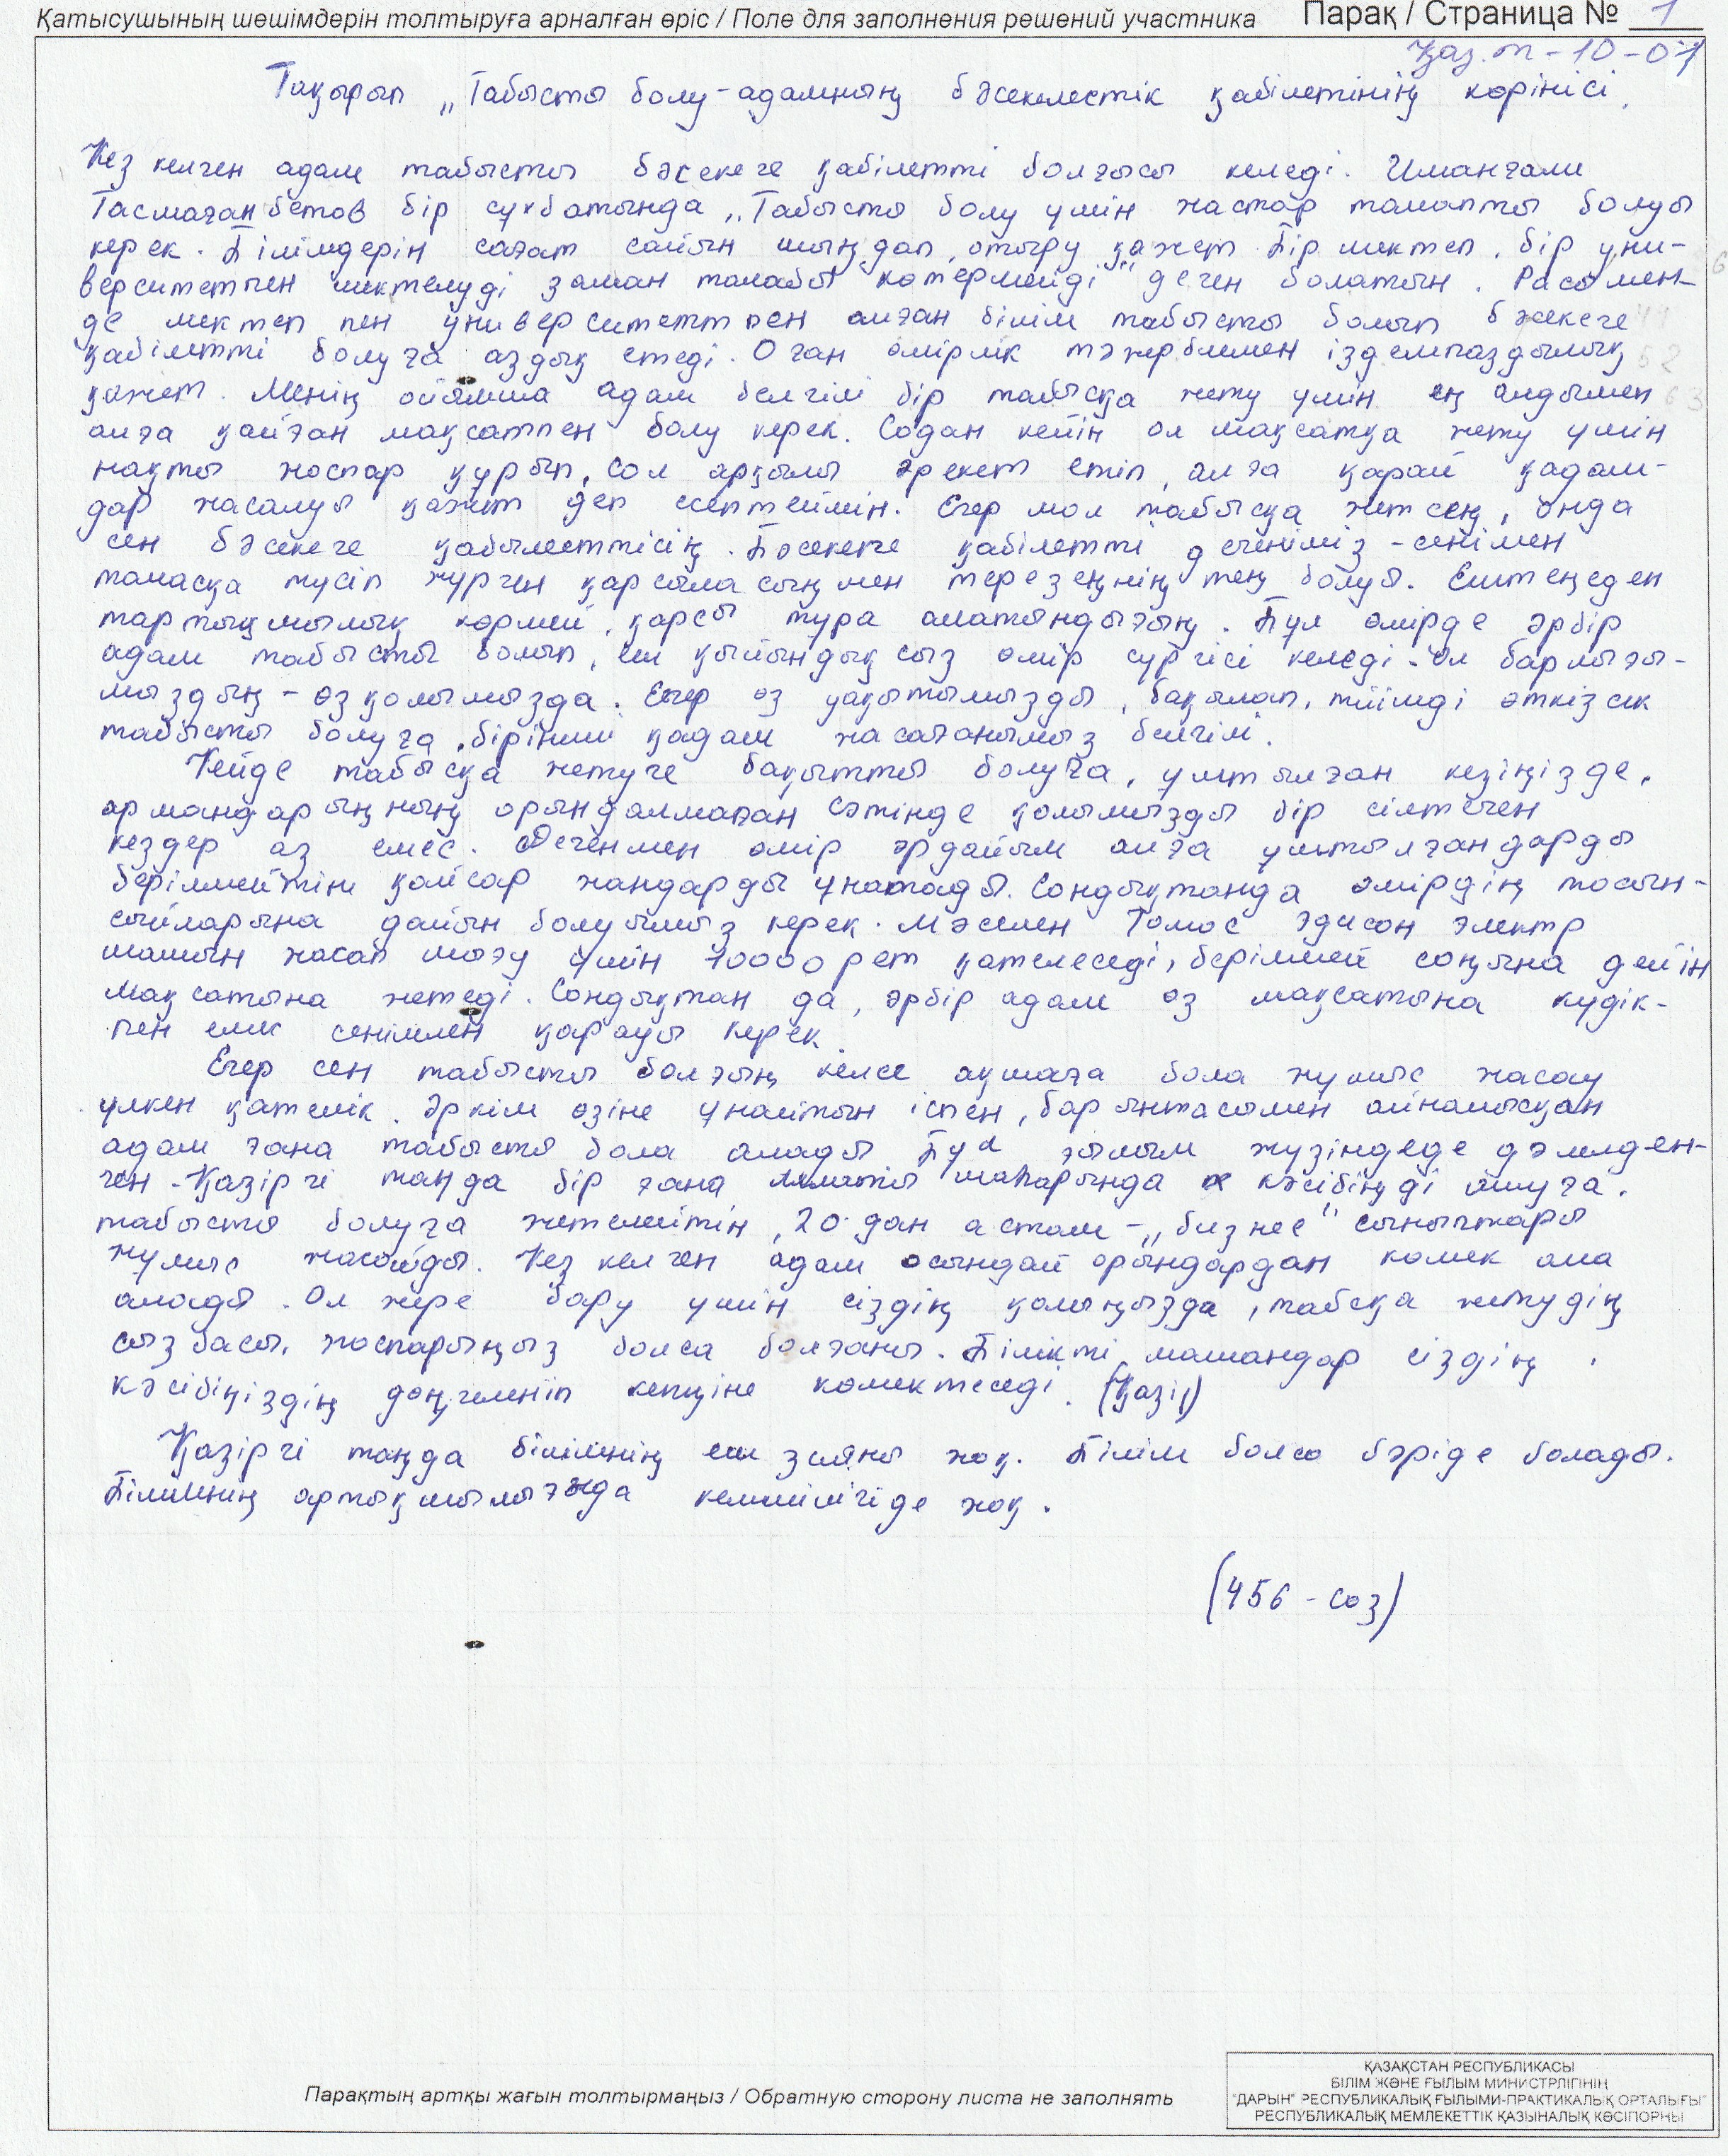 Қатысушының шешімдерін толтыруға арналған өріс / Поле для заполнения решений участника Парақ / Страница № 1
Қаз.т - 10 - 07
Тақырып „Табысты болу - адамның бәсекелестік қабілетінің көрінісі.
Кез келген адам табысты бәсекеге қабілетті болғысы келеді. Иманғали
Тасмағанбетов бір сұхбатында „Табысты болу үшін жастар талапты болуы
керек. Білімдерін сағат сайын шыңдап отыру қажет. Бір мектеп, бір уни-
верситетпен шектелуді заман талабы көтермейді" деген болатын. Расымен-
де мектеп пен университеттпен алған білім табысты болып бәсекеге
қабілетті болуға аздық етеді. Оған өмірлік тәжербиемен ізденпаздылық
қажет. Менің ойымша адам белгілі бір табысқа жету үшін ең алдымен
алға қойған мақсатпен болу керек. Содан кейін ол мақсатқа жету үшін
нақты жоспар құрып, сол арқылы әрекет етіп, алға қарай қадам-
дар жасалуы қажет деп есептеймін. Егер мол табысқа жетсең, онда
сен бәсекеге қабылеттісің. Бәсекеге қабілетті дегеніміз - сенімен
таласқа түсіп жүрген қарсыласыңмен терезеңнің тең болуы. Ештеңеден
тартыншылық көрмей, қарсы тұра алатындығың. Бұл өмірде әрбір
адам табысты болып, еш қыйындықсыз өмір сүргісі келеді. Ол барлығы-
мыздың - өз қолымызда. Егер өз уақытымызды, бақылап, тиімді өткізсек
табысты болуға, бірінші қадам жасағанымыз белгілі.
Кейде табысқа жетуге бақытты болуға, ұмтылған кезіңізде,
армандарыңның орындалмаған сәтінде қолымызды бір сілтеген
кездер аз емес. Дегенмен өмір әрдайым алға ұмтылғандарды
берілмейтін қайсар жандарды ұнатады. Сондықтанда өмірдің тосын-
сыйларына дайын болуымыз керек. Мәселен Томас Эдисон электр
шамын жасап шығу үшін 10000 рет қателеседі, берілмей соңына дейін
мақсатына жетеді. Сондықтан да, әрбір адам өз мақсатына күдік-
пен емес сеніммен қарауы керек.
Егер сен табысты болғың келсе ақшаға бола жұмыс жасау
үлкен қателік. Әркім өзіне ұнайтын іспен, бар ынтасымен айналысқан
адам ғана табысты бола алады. Бұл ғылым жүзіндеде дәлелден-
ген. Қазіргі таңда бір ғана Алматы шаһарында кәсібіңді ашуға,
табысты болуға жетелейтін, 20-дан астам - „бизнес" сыныптары
жұмыс жасайды. Кез келген адам осындай орындардан көмек ала
алады. Ол жерге бару үшін сіздің қолыңызда, табсқа жетудің
сызбасы, жоспарыңыз болса болғаны. Білікті мамандар сіздің
кәсібіңіздің дөңгеленіп кетуіне көмектеседі. (Қазір)
Қазіргі таңда білімнің еш зияны жоқ. Білім болса бәріде болады.
Білімнің артықшылығыда кемшілігіде жоқ.
(456 - сөз)
Парақтың артқы жағын толтырмаңыз / Обратную сторону листа не заполнять
ҚАЗАҚСТАН РЕСПУБЛИКАСЫ
БІЛІМ ЖӘНЕ ҒЫЛЫМ МИНИСТРЛІГІНІҢ
"ДАРЫН" РЕСПУБЛИКАЛЫҚ ҒЫЛЫМИ-ПРАКТИКАЛЫҚ ОРТАЛЫҒЫ"
РЕСПУБЛИКАЛЫҚ МЕМЛЕКЕТТІК ҚАЗЫНАЛЫҚ КӘСІПОРНЫ